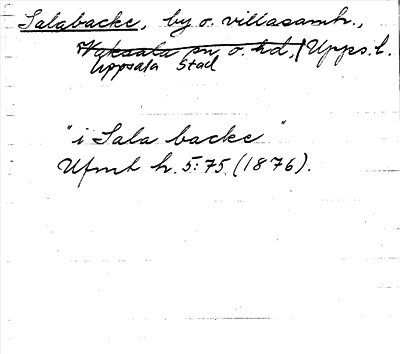 Salabacke, by o. villasamh.,
Vaksala sn o. hd, Upps. l.
Uppsala Stad
"i Sala backe"
Ufmt h. 5:75. (1876).